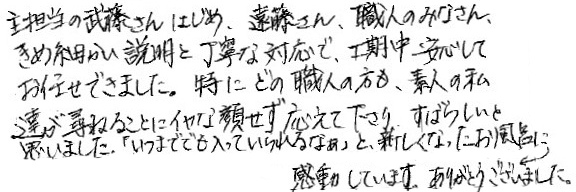 主担当の武藤さんはじめ、遠藤さん、職人のみなさん、
きめ細かい説明と丁寧な対応で、工期中安心して
お任せできました。特にどの職人の方も、素人の私
達が尋ねることにイヤな顔せず応えて下さり、すばらしいと
思いました。「いつまででも入っていられるなぁ」と、新しくなったお風呂に
感動しています。ありがとうございました。